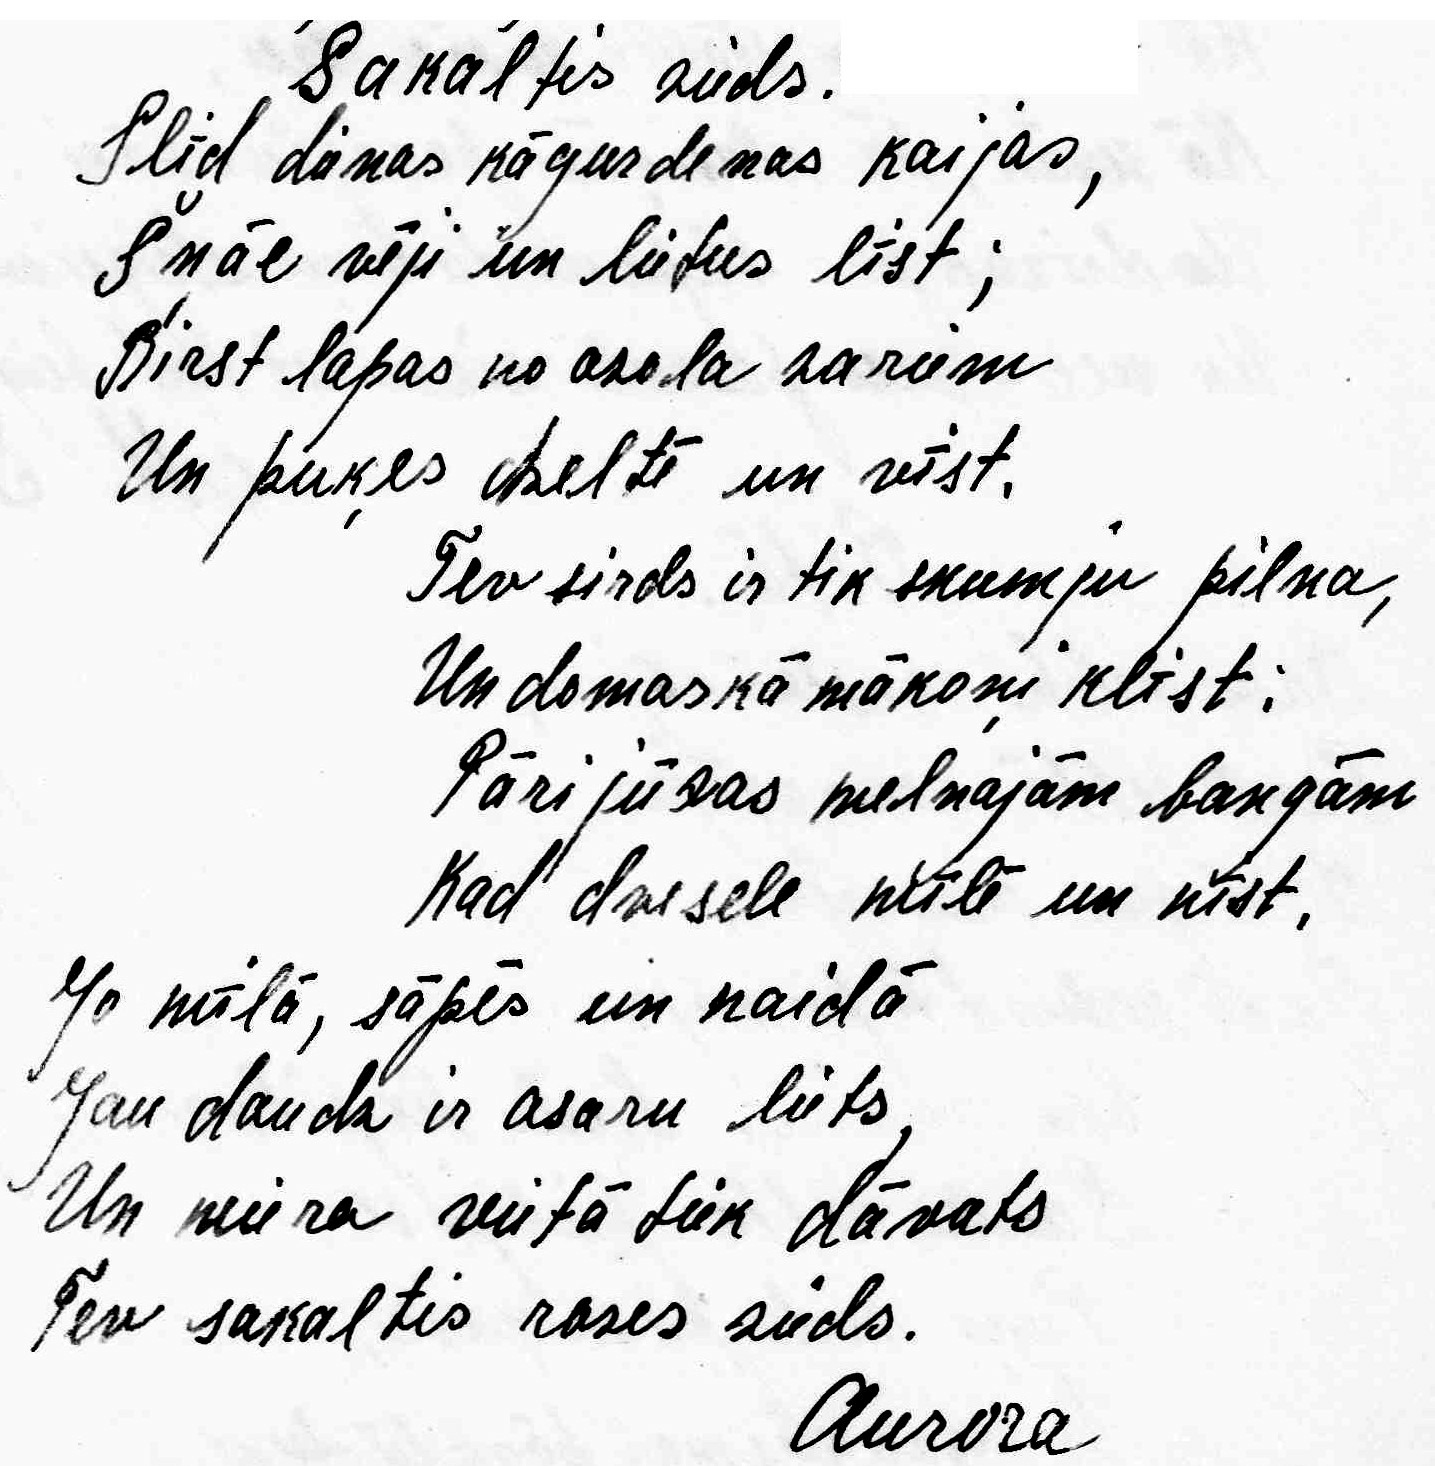 Sakaltis zieds.
Slīd dienas kā gurdenas kaijas,
Šņāc vēji un lietus līst;
Birst lapas no ozola zariem
Un puķes dzeltē un vīst.
Tev sirds ir tik skumju pilna,
Un domas kā mākoņi klīst;
Pāri jūras melnajām bangām
Kad dvēsele mīlē un nīst.
Jo mīlā, sāpēs un naidā
Jau daudz ir asaru liets,
Un miera vietā tiek dāvāts
Tev sakaltis rozes zieds.
Aurora